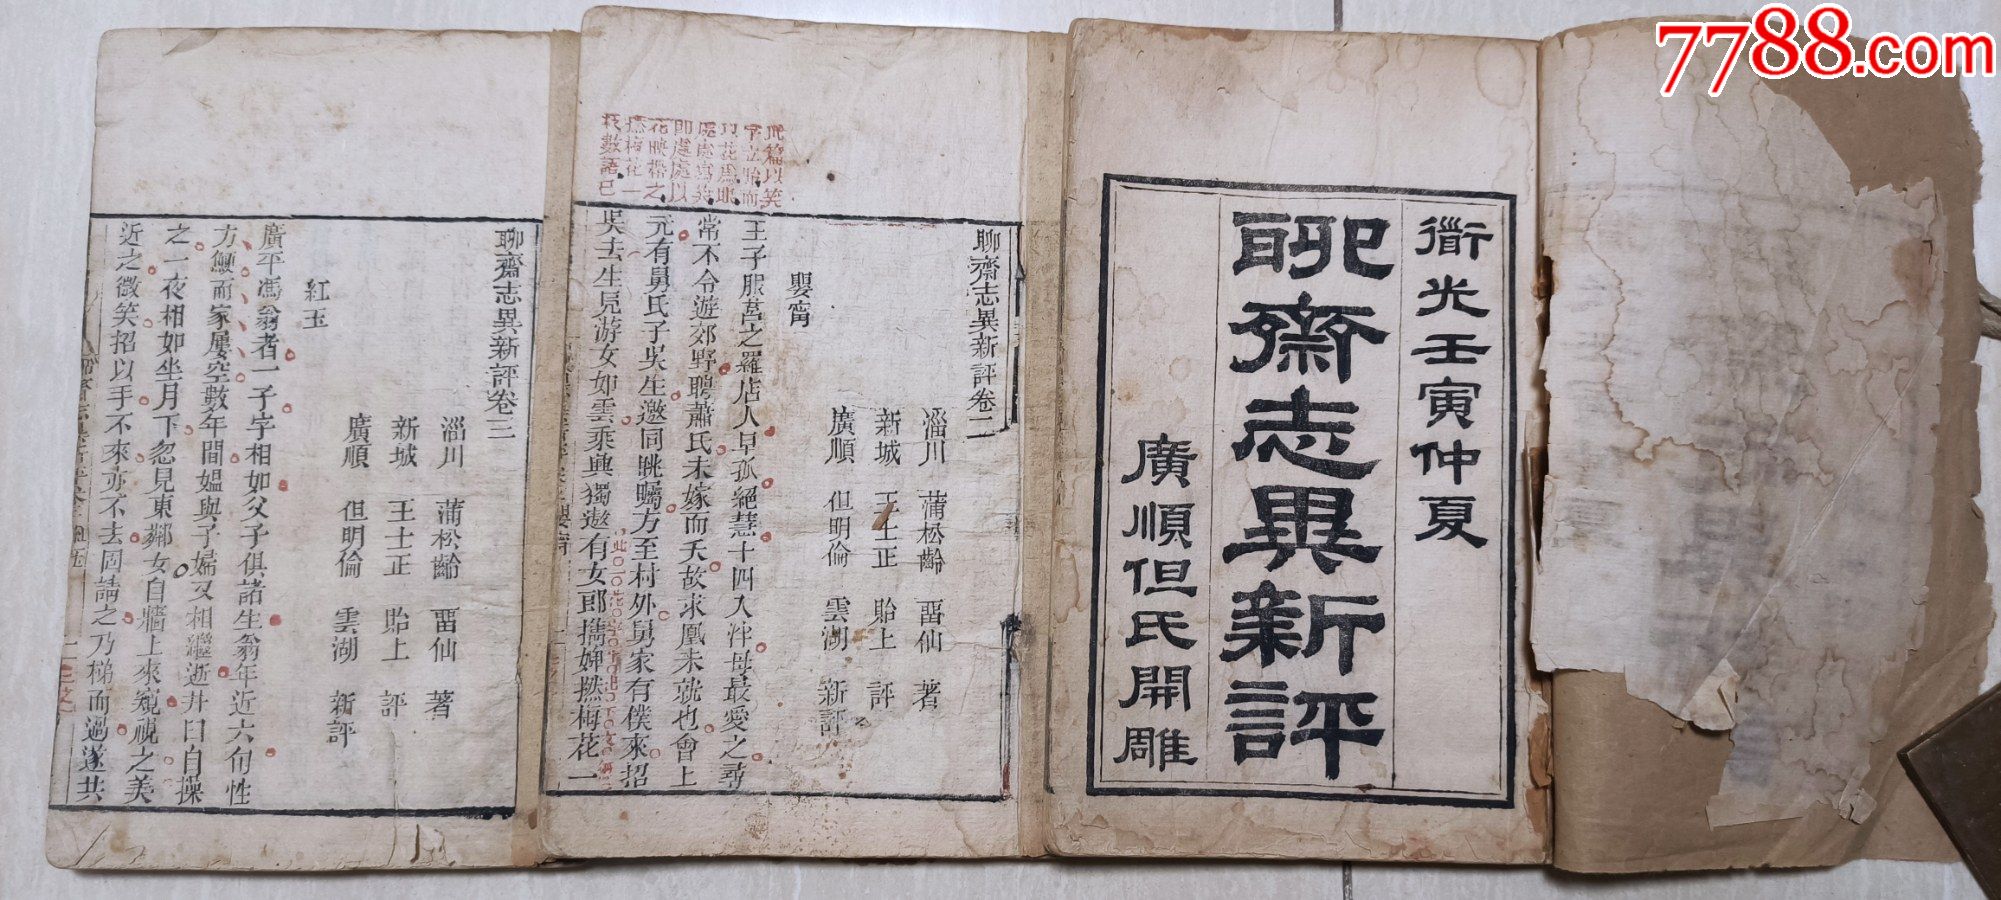 7788.com
道光壬寅仲夏
聊齋志異新評
廣順但氏開雕
聊齋志異新評卷二
淄川 蒲松齡 畱仙 著
新城 王士正 貽上 評
廣順 但明倫 雲湖 新評
嬰甯
王子服莒之羅店人早孤絕慧十四入泮母最愛之尋
常不令遊郊野聘蕭氏未嫁而夭故求凰未就也會上
元有舅氏子吳生邀同眺矚方至村外舅家有僕來招
吳去生見游女如雲乘興獨遨有女郎攜婢撚梅花一
此篇以笑
字立胎而
以花爲眼
處處寫笑
卽處處以
花映帶之
撚梅花一
枝數語已
聊齋志異新評卷三
淄川 蒲松齡 畱仙 著
新城 王士正 貽上 評
廣順 但明倫 雲湖 新評
紅玉
廣平馮翁者一子字相如父子俱諸生翁年近六旬性
方鯁而家屢空數年間媼與子婦又相繼逝井臼自操
之一夜相如坐月下忽見東鄰女自牆上來窺視之美
近之微笑招以手不來亦不去固請之乃梯而過遂共